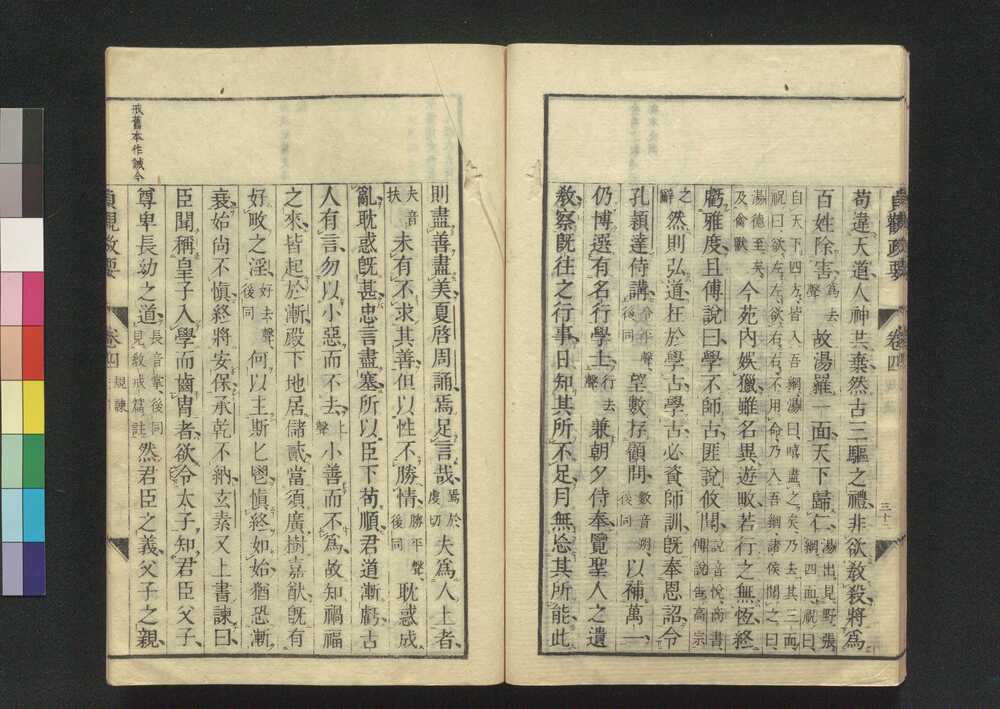 苟違天道人神共棄然古三驅之禮非欲教殺將爲
百姓除害爲去聲故湯羅一面天下歸仁湯出見野張網四面祝曰
自天下四方皆入吾網湯曰嘻盡之矣乃去其三面
祝曰欲左左欲右右不用命乃入吾網諸侯聞之曰
湯德至矣及禽獸今苑內娛獵雖名異遊畋若行之無恆終
虧雅度且傅說曰學不師古匪說攸聞說音悅尚書傅說告高宗
之辭然則弘道在於學古學古必資師訓既奉恩詔令
孔穎達侍講令平聲後同望數存顧問數音朔後同以補萬一
仍博選有名行學士行去聲兼朝夕侍奉覽聖人之遺
教察既往之行事日知其所不足月無忘其所能此
貞觀政要 卷四 三十
則盡善盡美夏啓周誦焉足言哉焉於虔切夫爲人上者
夫音扶未有不求其善但以性不勝情勝平聲後同耽惑成
亂耽惑既甚忠言盡塞所以臣下苟順君道漸虧古
人有言勿以小惡而不去上聲小善而不爲故知禍福
之來皆起於漸殿下地居儲貳當須廣樹嘉猷既有
好畋之淫好去聲後同何以主斯匕鬯慎終如始猶恐漸
衰始尚不慎終將安保承乾不納玄素又上書諫曰
臣聞稱皇子入學而齒胄者欲令太子知君臣父子
尊卑長幼之道長音掌後同見教戒篇註然君臣之義父子之親
戒舊本作誡今
貞觀政要 卷四 規諫